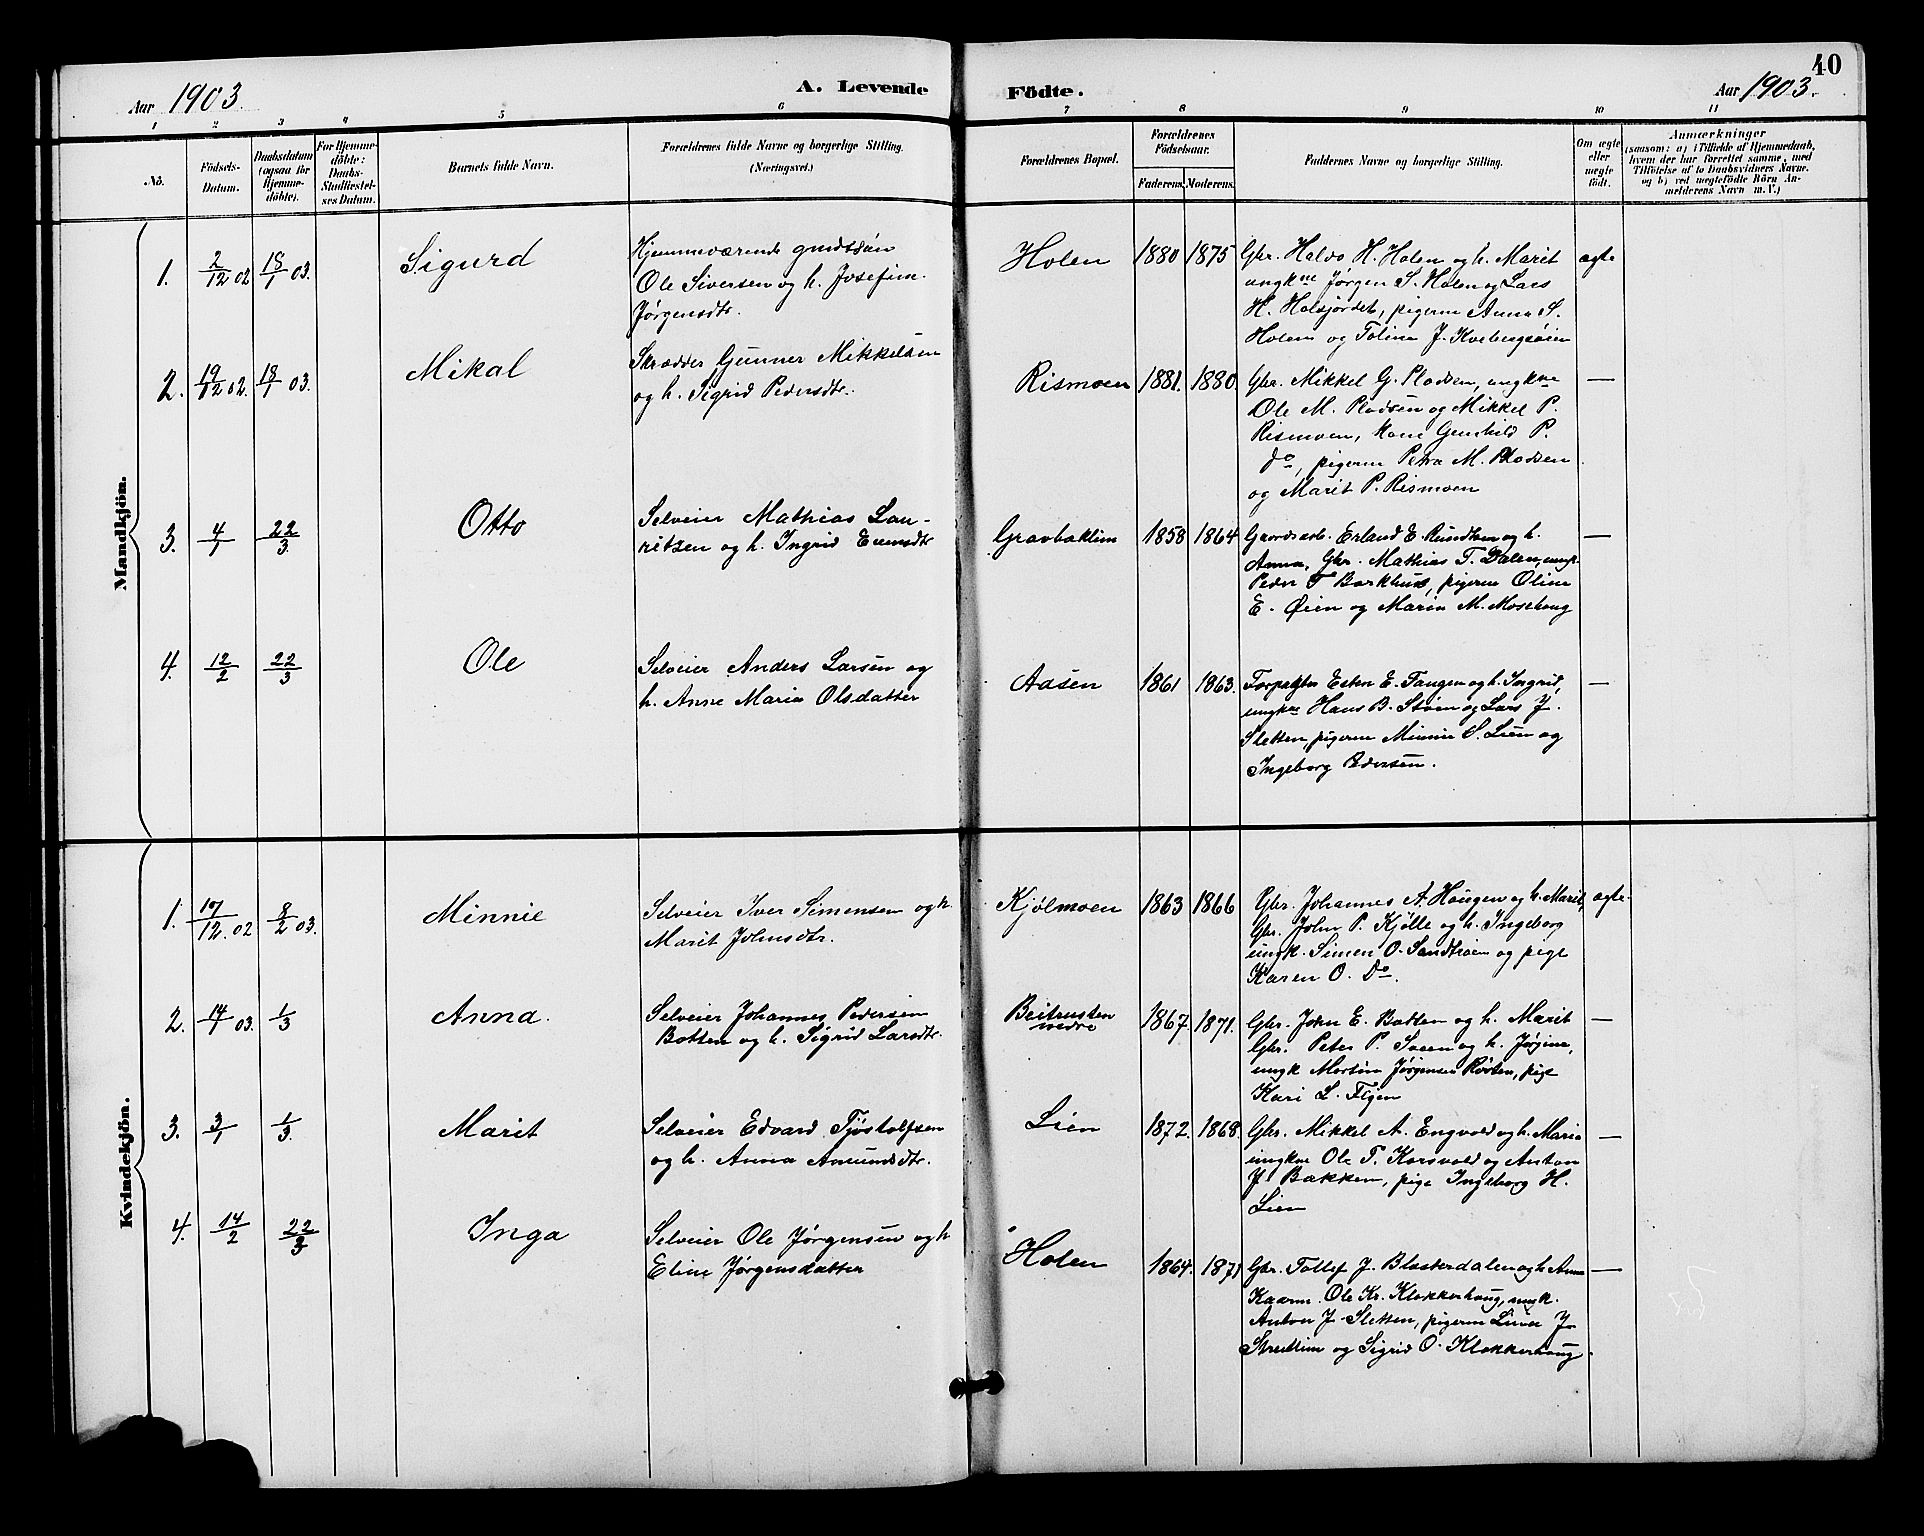 40
Aar 1903.
A. Levende Födte.
Aar 1903.
1 2 3 4 5 6 7 8 9 10 11
No.
Födsels-
Datum.
Daabsdatum
(ogsaa for
Hjemme-
döbte).
For Hjemme-
döbte:
Daabs-
Stadfæstel-
ses Datum.
Barnets fulde Navn.
Forældrenes fulde Navne og borgerlige Stilling.
(Næringsvei.)
Forældrenes Bopæl.
Forældrenes
Födselsaar.
Faderens. Moderens.
Faddernes Navne og borgerlige Stilling.
Om ægte
eller
uægte
födt.
Anmærkninger
(saasom: a) i Tilfælde af Hjemmedaab,
hvem der har forrettet samme, med
Tilföielse af to Daabsvidners Navne.
og b) ved uægtefödte Börn An-
melderens Navn m. V.)
Mandkjön.
1. 2/12 02 18/1 03. Sigurd
Hjemmeværende gmdssøn
Ole Siversen og h. Josefim
Jørgensdtr.
Holen 1880 1875
Gbr. Halvo H. Holen og h. Marit
ungkne Jørgen S. Holen og Lars
H. Holsjordet, pigerne Anne S.
Holen og Tolina J. Kvebergsøien
ægte
2. 19/12 02. 18/1 03. Mikal
Skrædder Gunner Mikkelsen
og h. Sigrid Pedersdtr.
Rismoen 1881. 1880.
Gbr. Mikkel G. Pladsen, ungkne
Ole M. Pladsen og Mikkel P.
Rismoen, kone Gunhild P.
do, pigerne Petra M. Pladsen
og Marit P. Rismoen
—
3. 4/1 22/3 Otto
Selveier Mathias Lau-
ritzen og h. Ingrid Evensdtr
Gravbaklien 1858 1864
Gaardsarb. Erland E. Rundtom og h.
Anna, Gbr. Mathias T. Dalen, ungk.
Peder T Barkhus, pigerne Oline
E. Øien og Marin M. Mosehaug
—
4. 12/2 22/3 Ole
Selveier Anders Larsen og
h. Anne Maria Olsdatter
Aasen 1861 1863.
Forpagter Esten E. Tangen og h. Ingrid,
ungkne Hans B. Støen og Lars J.
Sletten, pigerne Minnie S. Lien og
Ingeborg Pedersen.
—
Kvindekjön.
1. 17/12. 02 8/2 03. Minnie
Selveier Iver Simensen og h.
Marit Johnsdtr.
Kjølmoen 1863 1866
Gbr. Johannes A. Haugen og h. Marit,
Gbr. John P. Kjølle og h. Ingeborg
ungk. Simen O. Sandtrøen og pige
Karen O. Do.
ægte
2. 14/1 03. 1/3 Anna.
Selveier Johannes Pedersen
Botten og h. Sigrid Larsdtr.
Beitrusten
nedre
1867. 1871.
Gbr. John E. Botten og h. Marit
Gbr. Peter P. Sveen og h. Jørgine,
ungk Morten Jørgensen Røsten, pige
Kari L. Eigen
—
3. 3/1 1/3. Marit
Selveier Edvard Tjøstolfsen
og h. Anna Amundsdtr.
Lien 1872. 1868.
Gbr. Mikkel A. Engvold og h. Maria
ungkne Ole T. Korsvold og Anton
J. Bakken, pige Ingeborg H.
Lien
—
4. 14/2 22/3 Inga
Selveier Ole Jørgensen og h
Eline Jørgensdatter
Holen 1864. 1871
Gbr. Tollef J. Blosterdalen og h Anne
Kaarm. Ole Kr. Klokkerhaug, ungk.
Anton J Sletten, pigerne Line J
Streitlien og Sigrid O. Klokkerhaug.
—